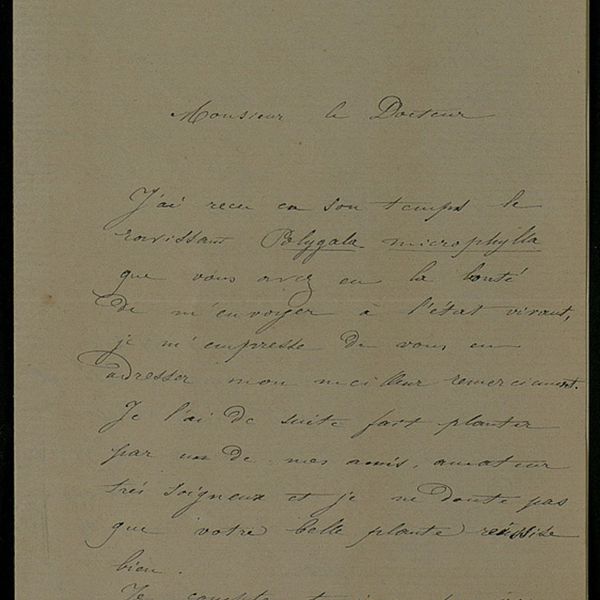 Monsieur le Docteur
J'ai reçu en son temps le
ravissant Polygala microphylla
que vous avez eu la bonté
de m'envoyer à l'état vivant,
je m'empresse de vous en
adresser mon meilleur remerciement.
Je l'ai de suite fait planter
par un de mes amis, amateur
très soigneux et je ne doute pas
que votre belle plante réussisse
bien.
Je compte